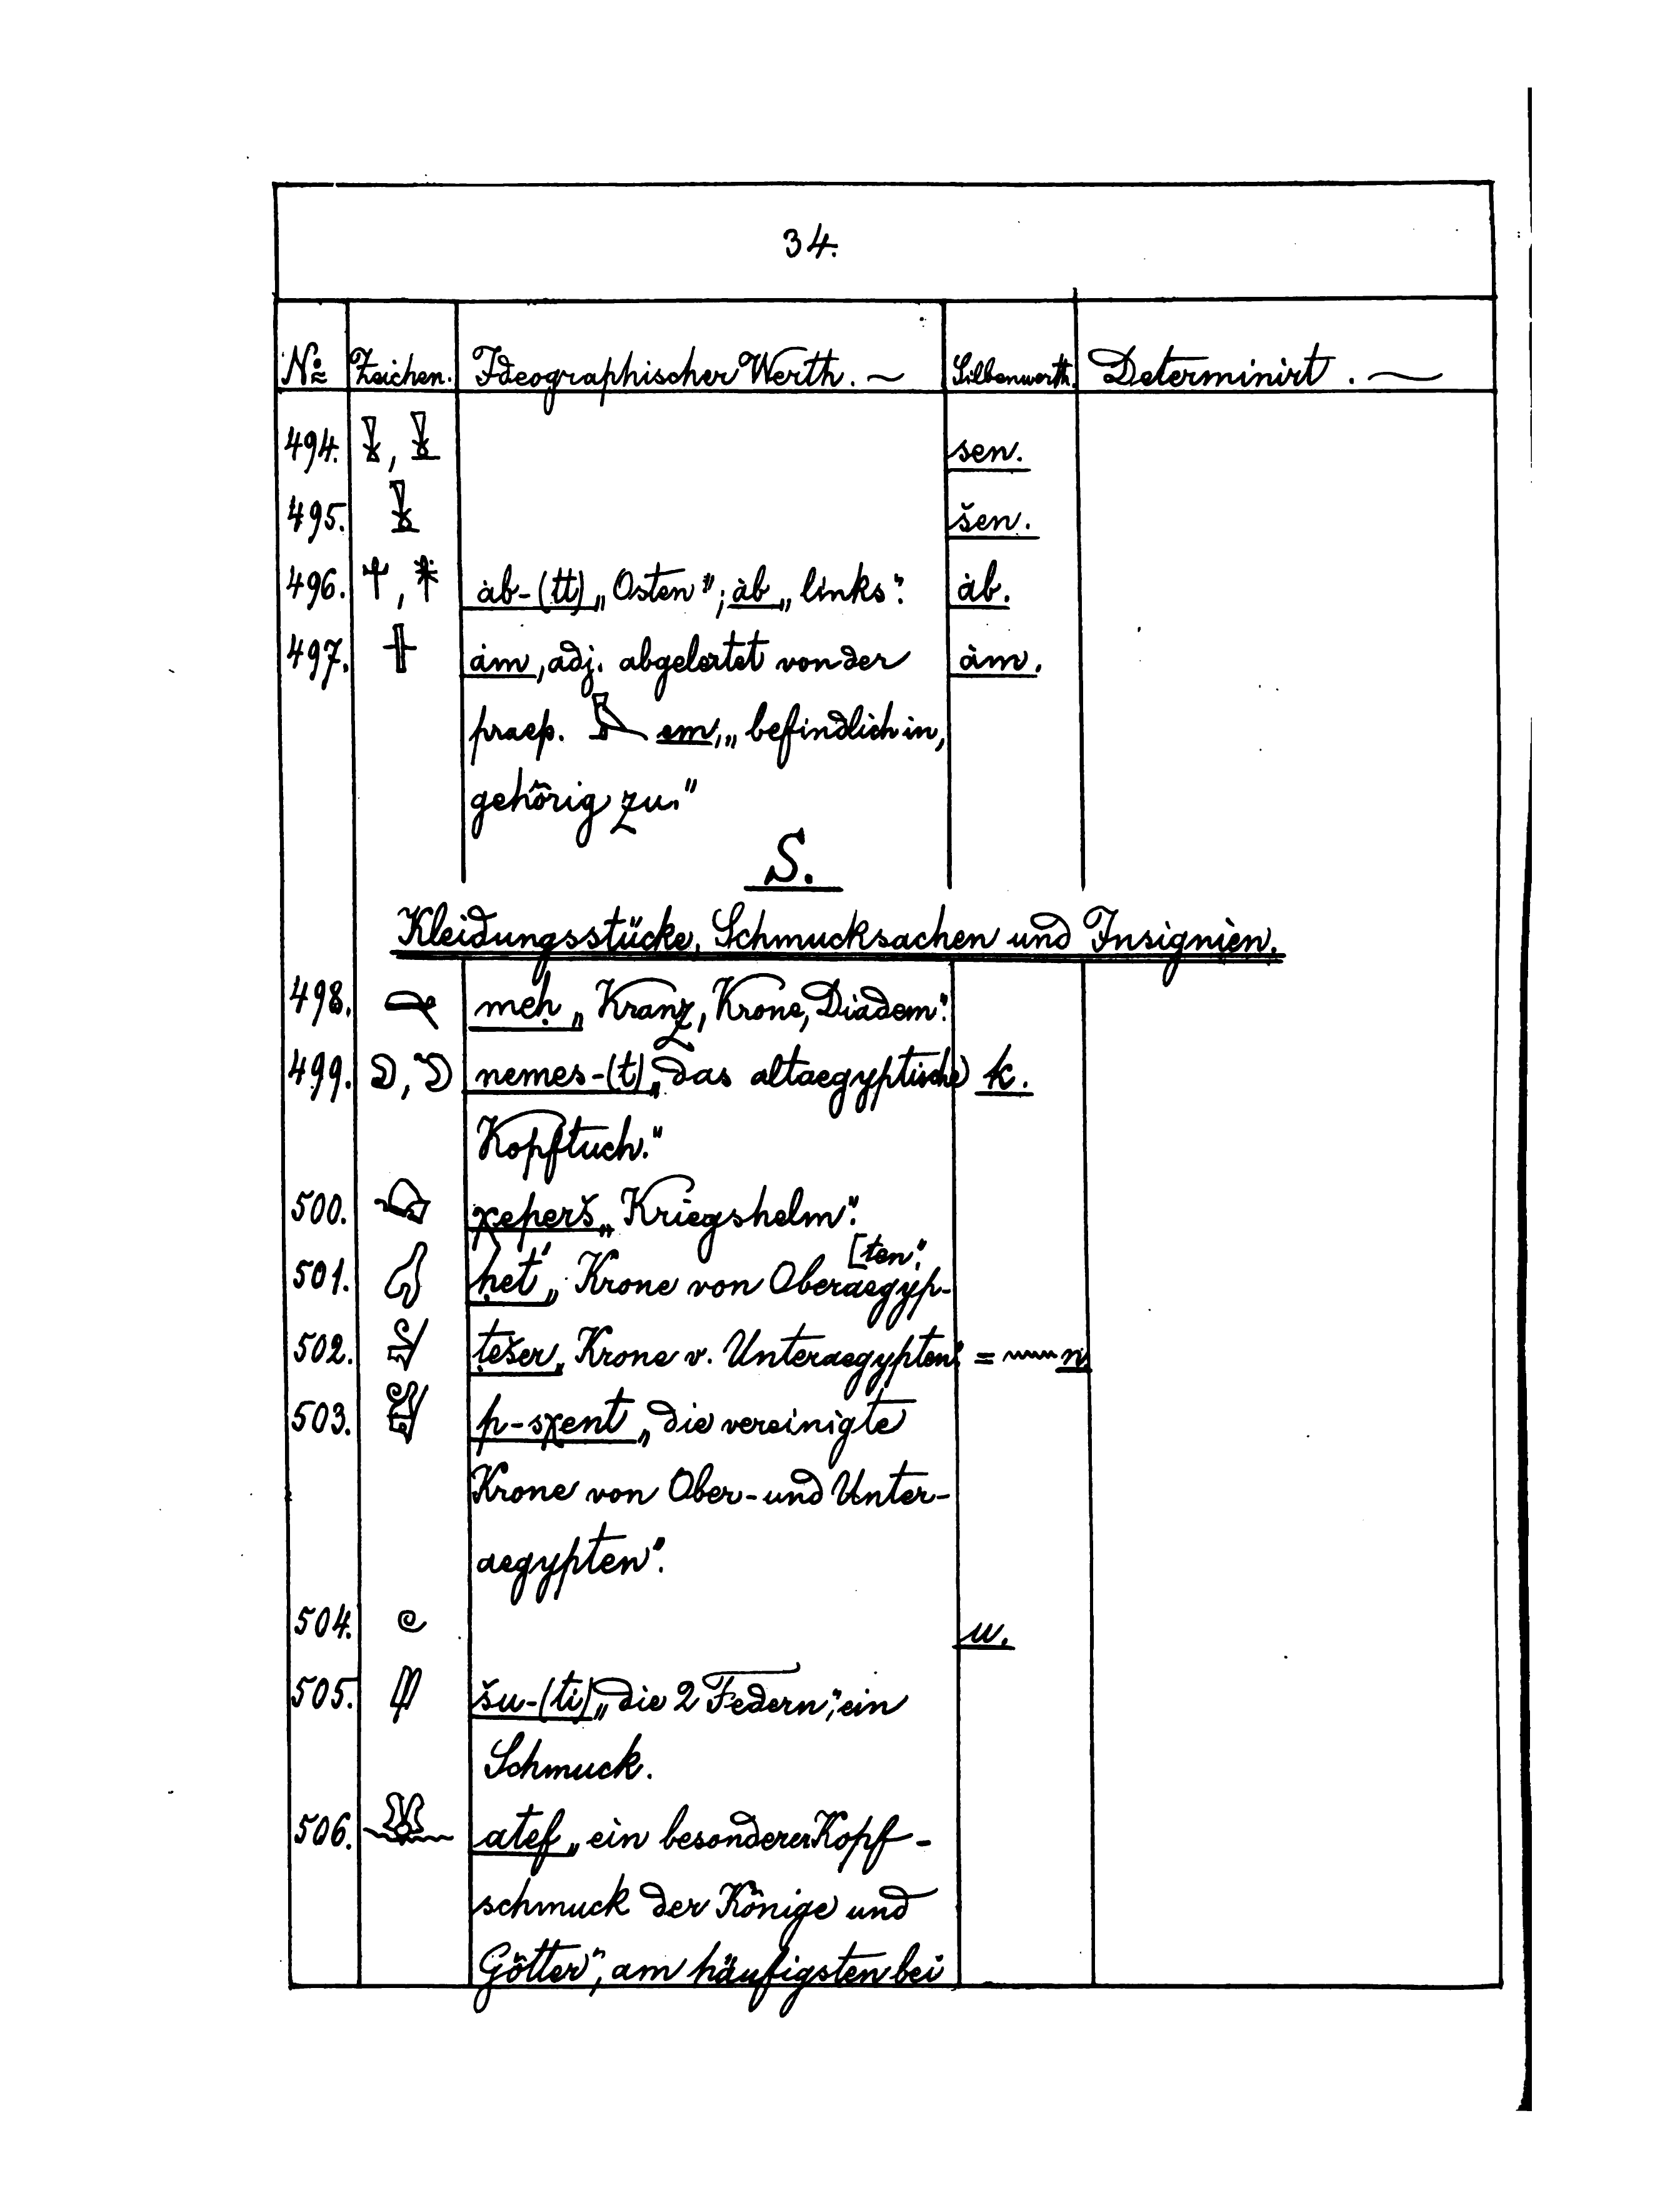 34.
No Zeichen. Ideographischer Werth. Silbenwerth. Determinirt.
494. , sen.
495. šen.
496. , ȧb-(tt) „Osten"; ȧb „links". ȧb.
497. ȧm, adj. abgeleitet von der ȧm.
praep. em, „befindlich in,
gehörig zu."
S.
Kleidungsstücke, Schmucksachen und Insignien.
498. meḥ „Kranz, Krone, Diadem".
499. , nemes-(t) „das altaegyptische k.
Kopftuch."
500. χeperš „Kriegshelm".
[ten".
501. ḥet' „Krone von Oberaegyp-
502. ṭešer „Krone v. Unteraegypten". = 𓈖 n
503. p-sχent „die vereinigte
Krone von Ober- und Unter-
aegypten".
504. u.
505. šu-(ti) „die 2 Federn", ein
Schmuck.
506. atef „ein besonderer Kopf-
schmuck der Könige und
Götter", am häufigsten bei